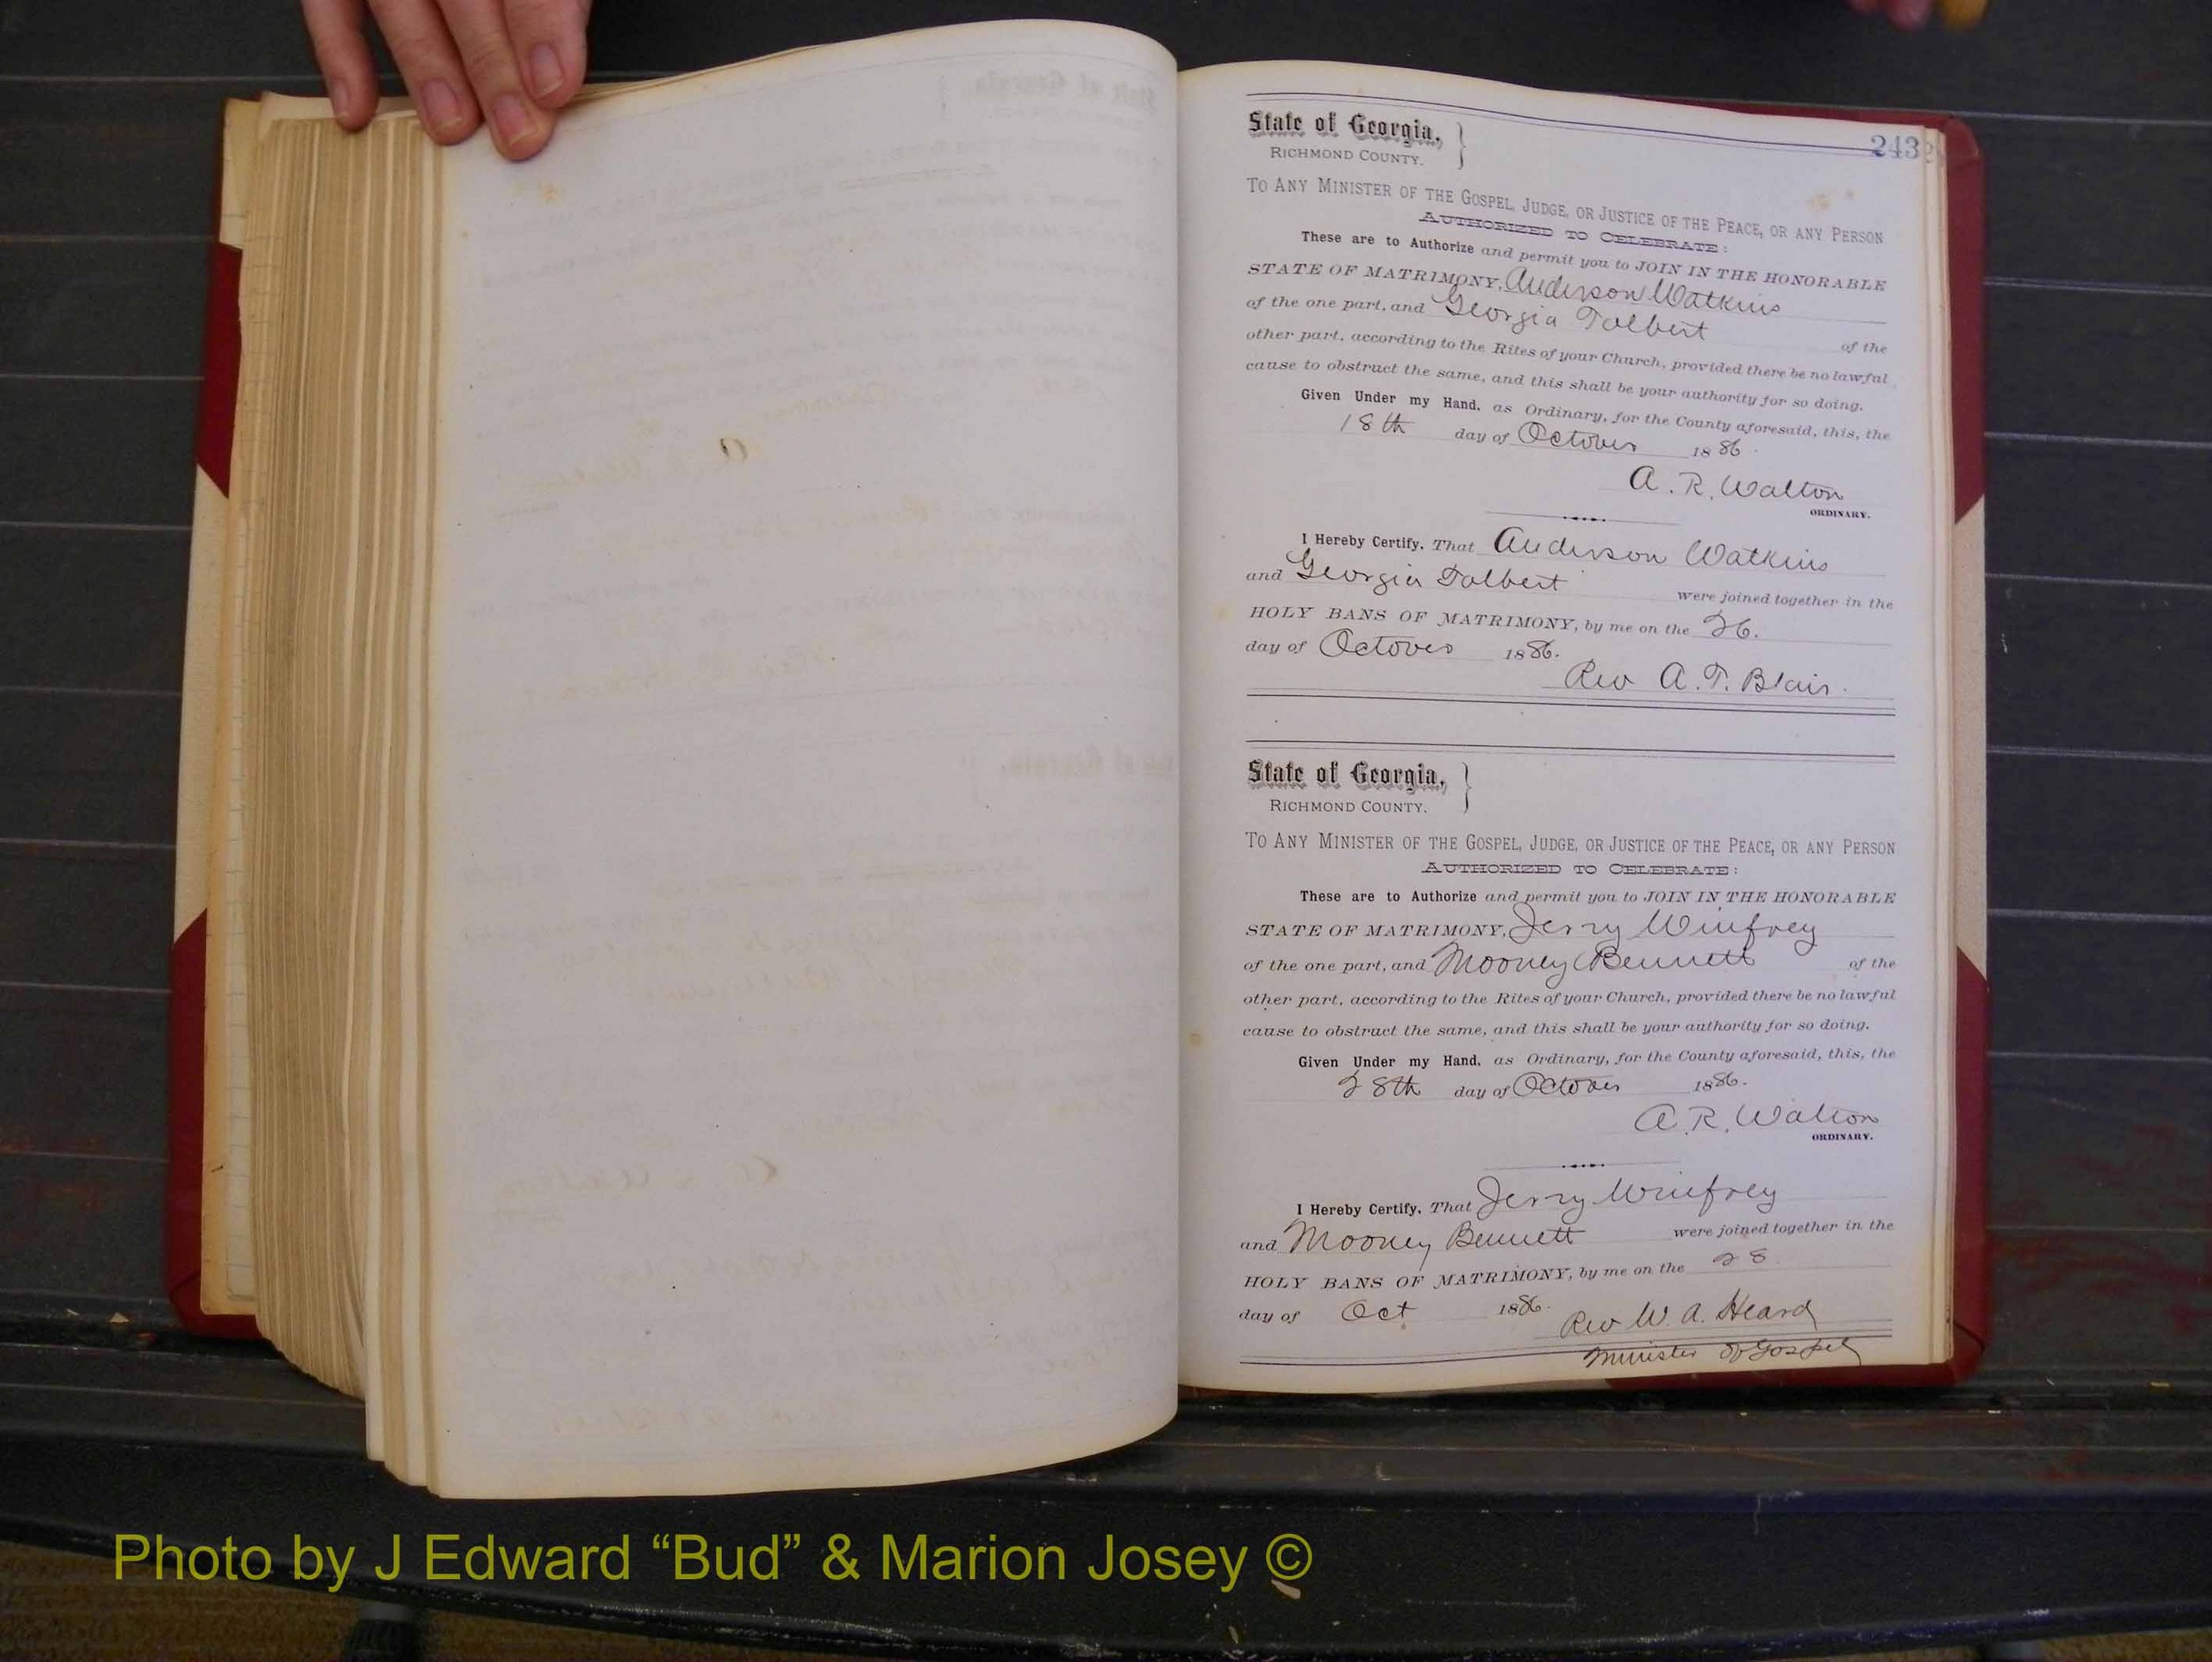 243
State of Georgia,
RICHMOND COUNTY.
TO ANY MINISTER OF THE GOSPEL, JUDGE, OR JUSTICE OF THE PEACE, OR ANY PERSON
AUTHORIZED TO CELEBRATE:
These are to Authorize and permit you to JOIN IN THE HONORABLE
STATE OF MATRIMONY, Anderson Watkins
of the one part, and Georgia Tolbert of the
other part, according to the Rites of your Church, provided there be no lawful
cause to obstruct the same, and this shall be your authority for so doing.
Given Under my Hand, as Ordinary, for the County aforesaid, this, the
18th day of October 1886.
A. R. Walton
ORDINARY.
I Hereby Certify, That Anderson Watkins
and Georgia Tolbert were joined together in the
HOLY BANS OF MATRIMONY, by me on the 26.
day of October 1886.
Rev A. T. Blair.
State of Georgia,
RICHMOND COUNTY.
TO ANY MINISTER OF THE GOSPEL, JUDGE, OR JUSTICE OF THE PEACE, OR ANY PERSON
AUTHORIZED TO CELEBRATE:
These are to Authorize and permit you to JOIN IN THE HONORABLE
STATE OF MATRIMONY, Jerry Winfrey
of the one part, and Mooney Bennett of the
other part, according to the Rites of your Church, provided there be no lawful
cause to obstruct the same, and this shall be your authority for so doing.
Given Under my Hand, as Ordinary, for the County aforesaid, this, the
28th day of October 1886.
A. R. Walton
ORDINARY.
I Hereby Certify, That Jerry Winfrey
and Mooney Bennett were joined together in the
HOLY BANS OF MATRIMONY, by me on the 28
day of Oct 1886.
Rev W. A. Heard
Minister of Gospel
Photo by J Edward “Bud” & Marion Josey ©